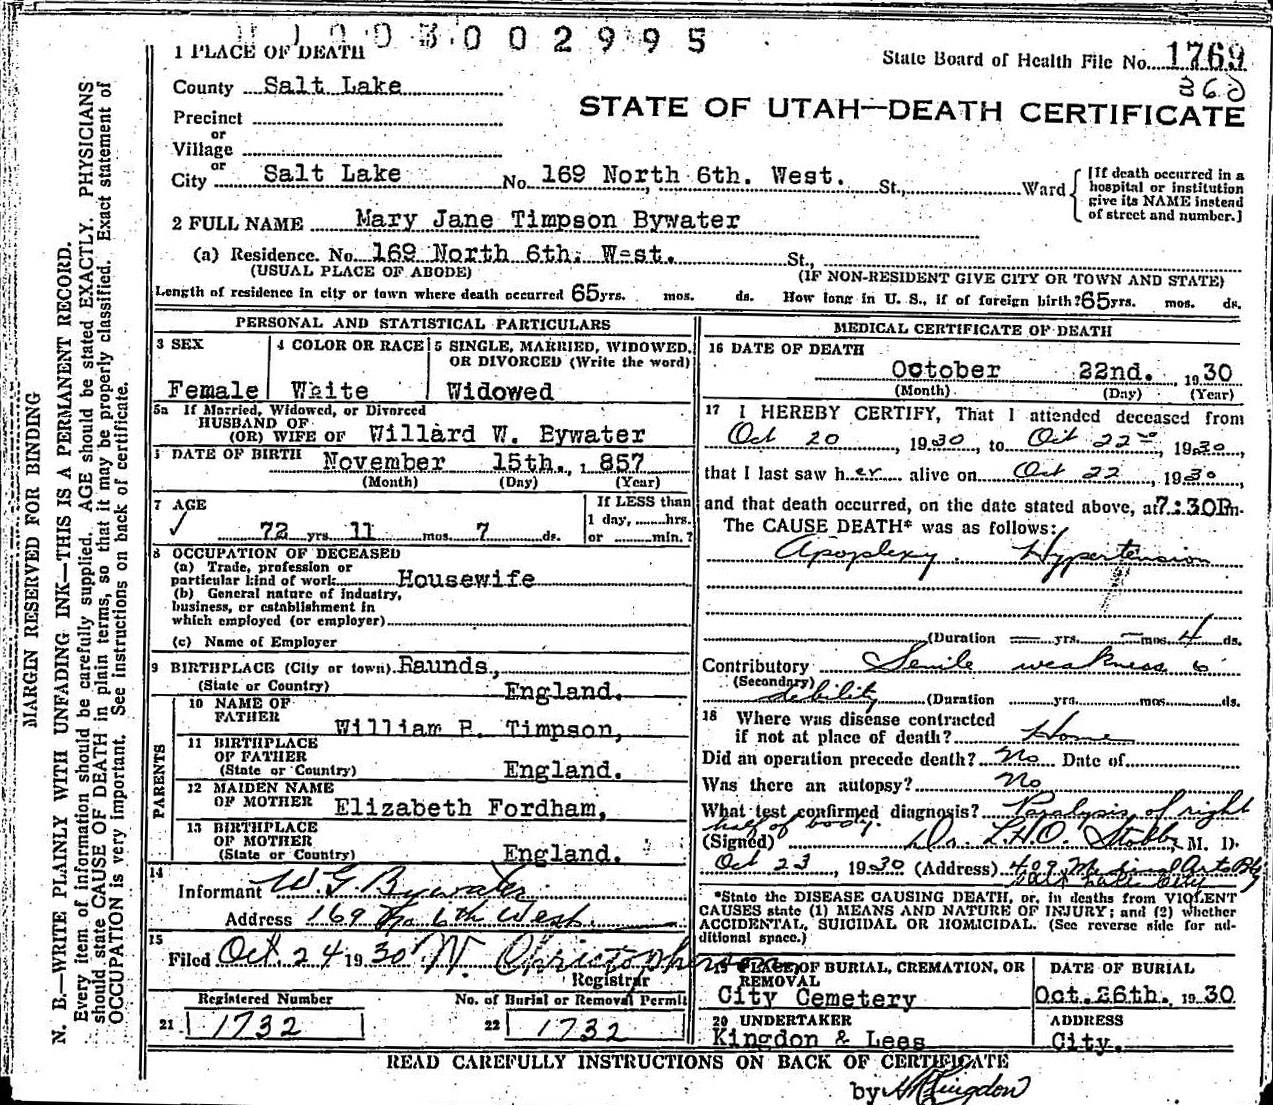 1003002995
1 PLACE OF DEATH
State Board of Health File No. 1769
360
County Salt Lake
STATE OF UTAH—DEATH CERTIFICATE
Precinct
or
Village
or
City Salt Lake No. 169 North 6th. West. St., Ward
[If death occurred in a hospital or institution give its NAME instead of street and number.]
2 FULL NAME Mary Jane Timpson Bywater
(a) Residence. No. 169 North 6th. West. St.,
(USUAL PLACE OF ABODE) (IF NON-RESIDENT GIVE CITY OR TOWN AND STATE)
Length of residence in city or town where death occurred 65 yrs. mos. ds. How long in U. S., if of foreign birth? 65 yrs. mos. ds.
PERSONAL AND STATISTICAL PARTICULARS
3 SEX
Female
4 COLOR OR RACE
White
5 SINGLE, MARRIED, WIDOWED,
OR DIVORCED (Write the word)
Widowed
5a If Married, Widowed, or Divorced
HUSBAND OF
(OR) WIFE OF Willard W. Bywater
DATE OF BIRTH November 15th., 1857
(Month) (Day) (Year)
7 AGE
72 yrs. 11 mos. 7 ds.
If LESS than
1 day, hrs.
or min.?
8 OCCUPATION OF DECEASED
(a) Trade, profession or
particular kind of work Housewife
(b) General nature of industry,
business, or establishment in
which employed (or employer)
(c) Name of Employer
9 BIRTHPLACE (City or town) Raunds,
(State or Country) England.
PARENTS
10 NAME OF
FATHER William P. Timpson,
11 BIRTHPLACE
OF FATHER
(State or Country) England.
12 MAIDEN NAME
OF MOTHER Elizabeth Fordham,
13 BIRTHPLACE
OF MOTHER
(State or Country) England.
14
Informant W. G. Bywater
Address 169 No 6th West
15
Filed Oct. 24 1930 W. Christopherson
Registrar
Registered Number
21 1732
No. of Burial or Removal Permit
22 1732
MEDICAL CERTIFICATE OF DEATH
16 DATE OF DEATH
October 22nd. 1930
(Month) (Day) (Year)
17 I HEREBY CERTIFY, That I attended deceased from
Oct 20, 1930, to Oct 22nd, 1930,
that I last saw her alive on Oct 22, 1930,
and that death occurred, on the date stated above, at 7:30P m.
The CAUSE DEATH* was as follows:
Apoplexy. Hypertension
(Duration — yrs. — mos. 4 ds.
Contributory Senile weakness &
(Secondary)
debility (Duration yrs. mos. ds.
18 Where was disease contracted
if not at place of death? Home
Did an operation precede death? No Date of
Was there an autopsy? No
What test confirmed diagnosis? Paralysis of right
half of body.
(Signed) Dr. L.H.O. Stobbe, M. D.
Oct 23 1930 (Address) 409 Medical Arts Bldg
Salt Lake City
*State the DISEASE CAUSING DEATH, or, in deaths from VIOLENT
CAUSES state (1) MEANS AND NATURE OF INJURY; and (2) whether
ACCIDENTAL, SUICIDAL OR HOMICIDAL. (See reverse side for ad-
ditional space.)
19 PLACE OF BURIAL, CREMATION, OR
REMOVAL
City Cemetery
DATE OF BURIAL
Oct. 26th. 1930
20 UNDERTAKER
Kingdon & Lees
ADDRESS
City.
READ CAREFULLY INSTRUCTIONS ON BACK OF CERTIFICATE
by Kingdon
MARGEN RESERVED FOR BINDING
N. B.—WRITE PLAINLY WITH UNFADING INK—THIS IS A PERMANENT RECORD.
Every item of information should be carefully supplied. AGE should be stated EXACTLY. PHYSICIANS
should state CAUSE OF DEATH in plain terms, so that it may be properly classified. Exact statement of
OCCUPATION is very important. See instructions on back of certificate.